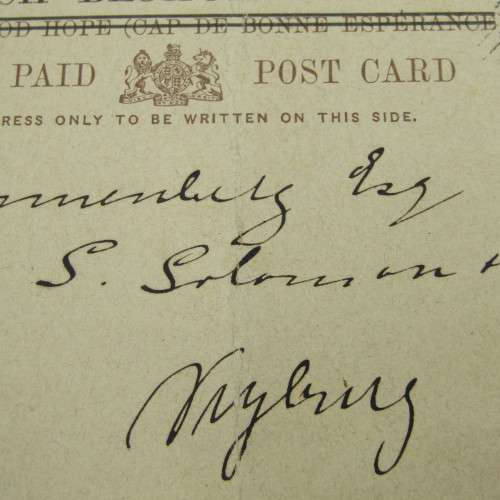 OD HOPE (CAP DE BONNE ESPÉRANCE
PAID POST CARD
RESS ONLY TO BE WRITTEN ON THIS SIDE.
nnenberg Esq
S. Solomon
Vryburg